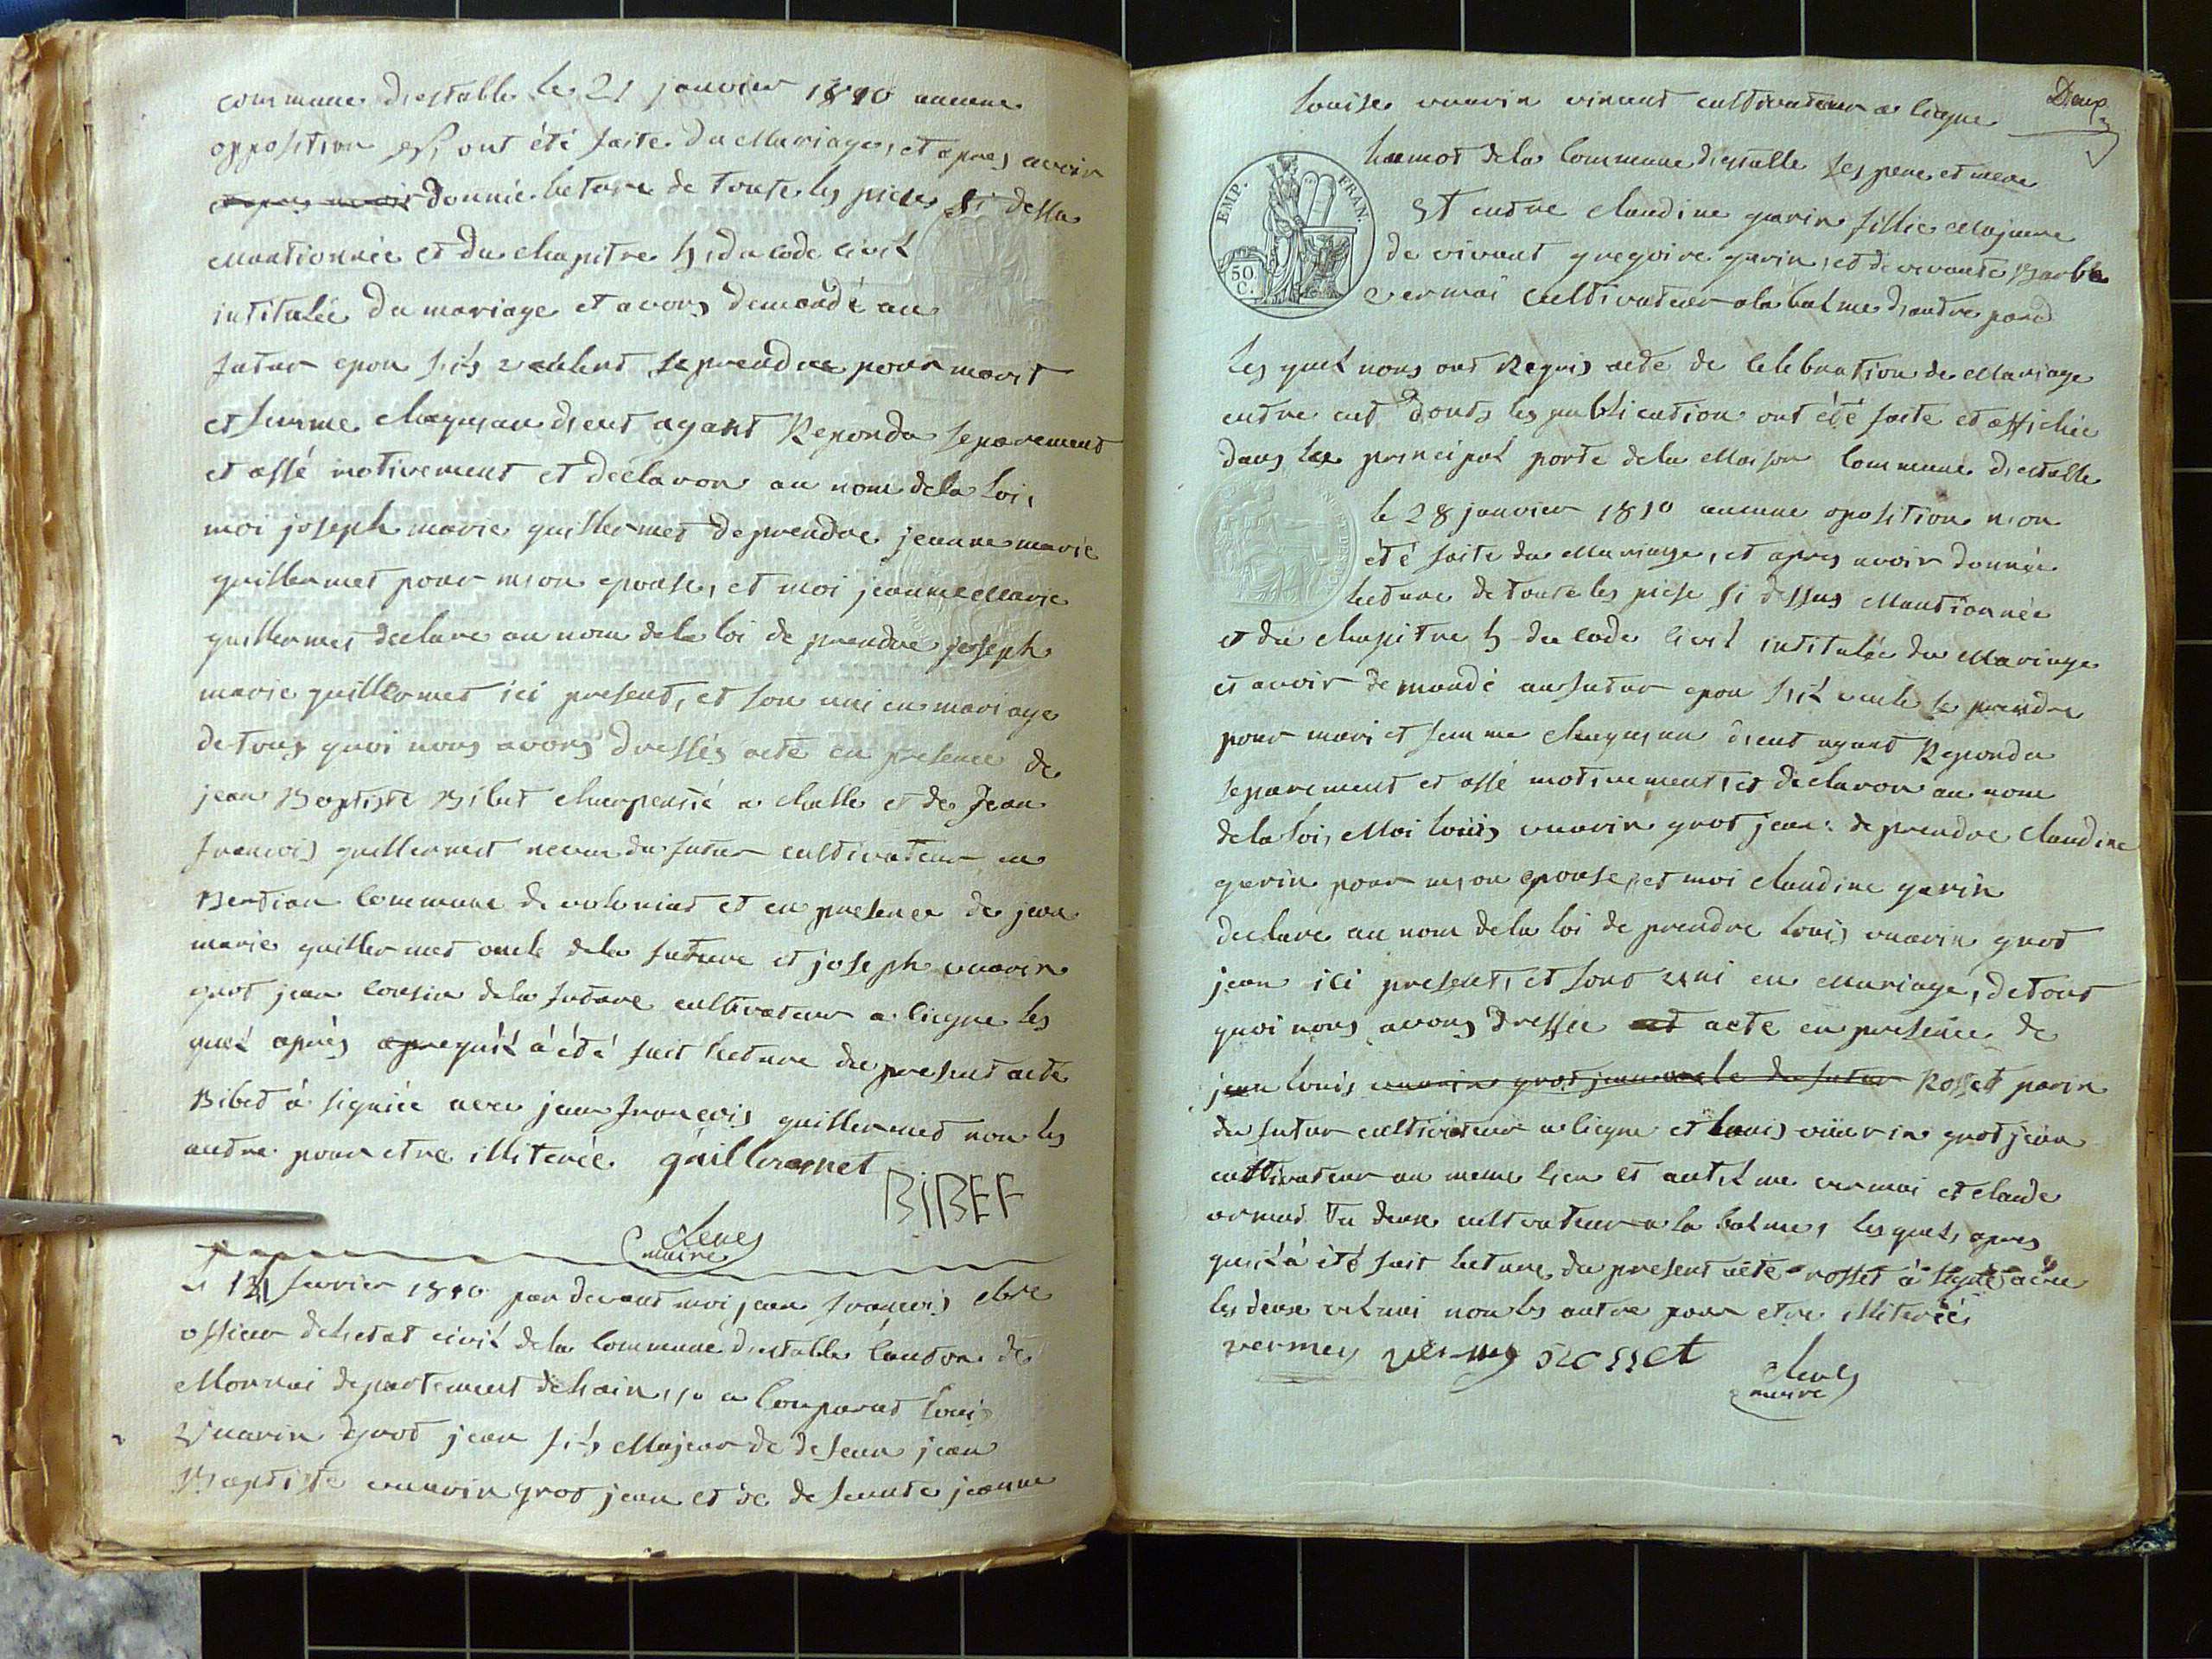 commune d'estable le 21 janvier 1810 aucune
opposition ont été faite du mariage, et apres avoir
donnée lecture de toute les piese si dessu
mantionnée et du chapitre 5, du code civil
intitulée du mariage et avons demandé au
futur epou s'ils veulent se prendre pour marit
et femme chaqu'un d'eut ayant Repondu separement
et assé motivement et declaron au nom de la loi,
moi joseph marie guillermet de prendre jeanne marie
guillermet pour mon epouse, et moi jeanne Marie
guillermet declare au nom de la loi de prendre joseph
marie guillermet ici present, et son uni en mariage
de tous quoi nous avons dressés acte en presence de
jean Baptiste Bibet charpentié a challe et de Jean
françois guillermet neveu du futur cultivateur en
Bertian commune de volonias et en presence de jean
marie guillermet oncle de la future et joseph vuarin
grot jean cousin de la future cultivateur a ciegne les
quel après qu'il à été fait lecture du present acte
Bibet à signée avec jean françois guillermet non les
autre pour etre illiterée guillermet
BIBEF
maire
fevrier 1810 par devant moi jean françois
officier de l'etat civil de la commune d'estable canton de
departement de l'ain, a comparut Loui
vuarin grot jean fils Majeur de defeun jean
Baptiste vuarin grot jean et de defeunte jeanne
Deux
Louise vuarin vivant cultivateur a ciegne
hamot de la commune d'estable ses pere et mere
et entre claudine garin fillie majeure
de vivant gregoire garin, et de vivante Barbe
vermai cultivateur a la balme d'autre pard
EMP. FRAN.
50 C.
les quel nous ont Requis acte de celebration de Mariage
entre eut donts les publication ont été faite et affichée
dans la principal porte de la Maison commune d'estable
le 28 janvier 1810 aucune oposition n'on
été faite du Mariage, et apres avoir donnée
lecture de toute les piese si dessus Mantionnée
et du chapitre 5 du code civil intitulée du Mariage
et avoir demandé au futur epou s'il veule se prendre
pour mari et femme chaqu'un d'eut ayant Repondu
separement et assé motivement, et declaron au nom
de la loi, Moi Louis vuarin grot jean de prendre claudine
garin pour mon epouse, et moi claudine garin
declare au nom de la loi de prendre Louis vuarin grot
jean ici present, et sont uni en Mariage, de tout
quoi nous avons dressée acte en presence de
jean louis vuarin grot jean oncle du futur Rosset parin
du futur cultivateur a ciegne et Louis vuarin grot jean
cultivateur au meme lieu et antelme vermai et claude
deuse cultivateur a la balme, les quel, apres
qu'il à été fait lecture du present acte rosset à signé avec
les deuse vermai non les autre pour etre illiterée
vermey vermey rosset
maire